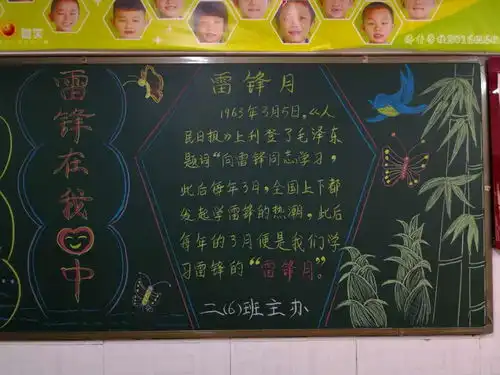 雷锋在我中
雷锋月
1963年3月5日,《人
民日报》上刊登了毛泽东
题词“向雷锋同志学习,
此后每年3月,全国上下都
发起学雷锋的热潮,此后
每年的3月便是我们学
习雷锋的“雷锋月”。
二(6)班主办